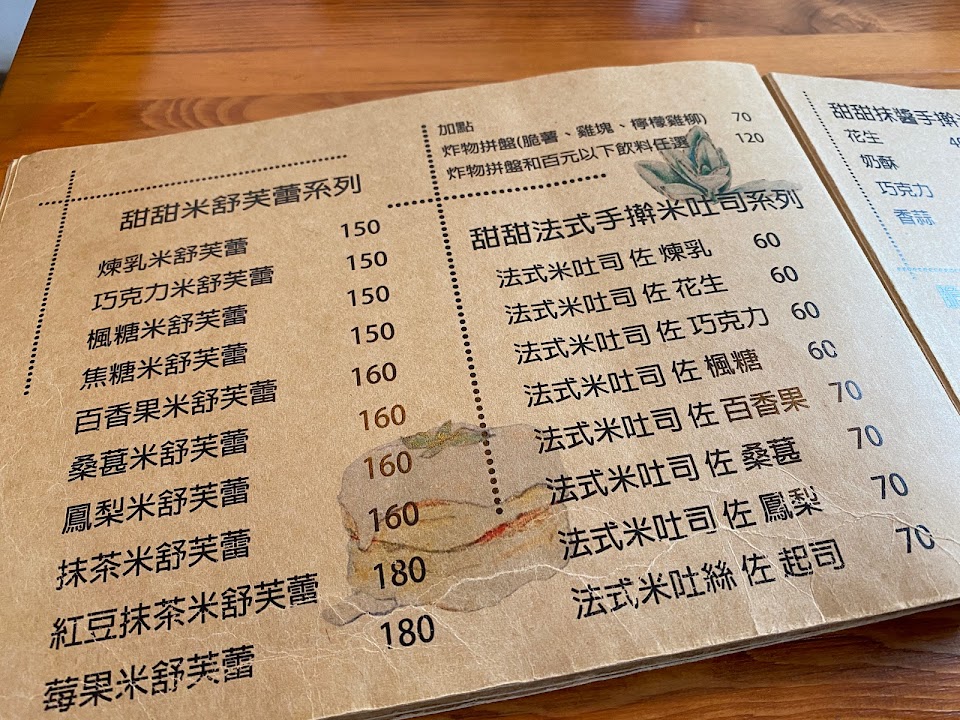 甜甜米舒芙蕾系列
煉乳米舒芙蕾 150
巧克力米舒芙蕾 150
楓糖米舒芙蕾 150
焦糖米舒芙蕾 150
百香果米舒芙蕾 160
桑葚米舒芙蕾 160
鳳梨米舒芙蕾 160
抹茶米舒芙蕾 160
紅豆抹茶米舒芙蕾 180
莓果米舒芙蕾 180
加點
炸物拼盤(脆薯、雞塊、檸檬雞柳) 70
炸物拼盤和百元以下飲料任選 120
甜甜法式手擀米吐司系列
法式米吐司 佐 煉乳 60
法式米吐司 佐 花生 60
法式米吐司 佐 巧克力 60
法式米吐司 佐 楓糖 60
法式米吐司 佐 百香果 70
法式米吐司 佐 桑葚 70
法式米吐司 佐 鳳梨 70
法式米吐絲 佐 起司 70
甜甜抹醬手擀
花生
奶酥
巧克力
香蒜